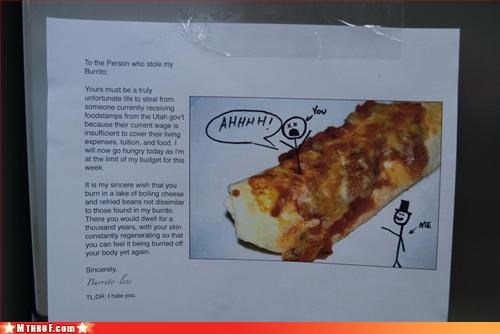 To the Person who stole my
Burrito:
Yours must be a truly
unfortunate life to steal from
someone currently receiving
foodstamps from the Utah gov't
because their current wage is
insufficient to cover their living
expenses, tuition, and food. I
will now go hungry today as I'm
at the limit of my budget for this
week.
It is my sincere wish that you
burn in a lake of boiling cheese
and refried beans not dissimilar
to those found in my burrito.
There you would dwell for a
thousand years, with your skin
constantly regenerating so that
you can feel it being burned off
your body yet again.
Sincerely,
Burrito-less
TL;DR: I hate you.
AHHHH!
YOU
ME
MThruF.com